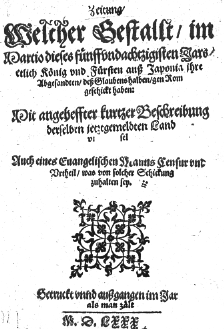 Zeitung/
Welcher Gestallt/ im
Martio dieses fünffvndachtzigisten Jars/
etlich König vnd Fürsten auß Japonia ihre
Abgesandten/ deß Glaubens halben/ gen Rom
geschickt haben:
Mit angeheffter kurtzer Beschreibung
derselben jetztgemeldten Land
Auch eines Euangelischen Manns Censur vnd
Vrtheil/ was von solcher Schickung
zuhalten sey.
Getruckt vnnd außgangen im Jar
als man zält
M. D. LXXX